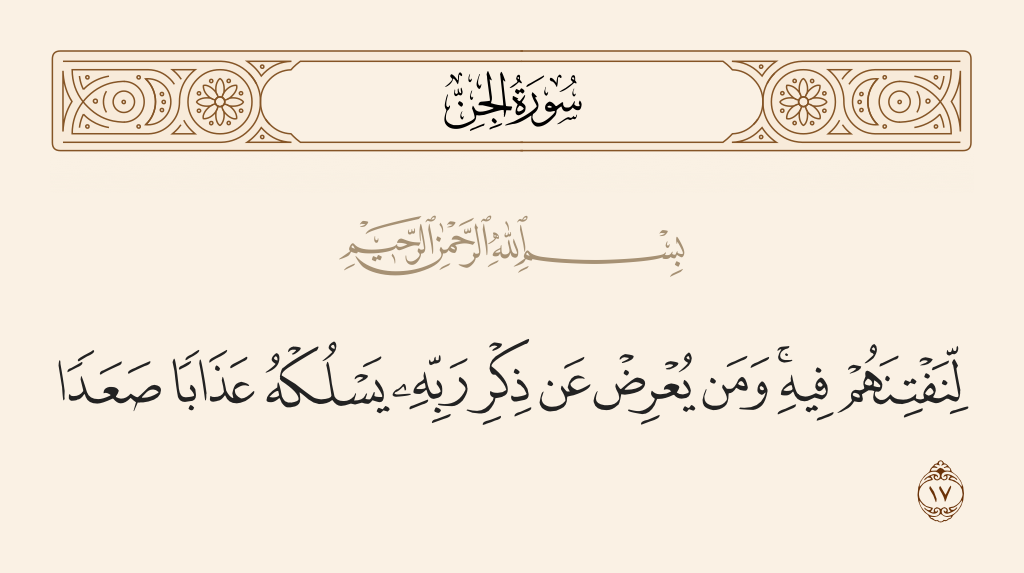 سُورَةُ الجِنِّ
بِسْمِ ٱللَّهِ ٱلرَّحْمَٰنِ ٱلرَّحِيمِ
لِّنَفْتِنَهُمْ فِيهِ ۚ وَمَن يُعْرِضْ عَن ذِكْرِ رَبِّهِۦ يَسْلُكْهُ عَذَابًا صَعَدًا
١٧